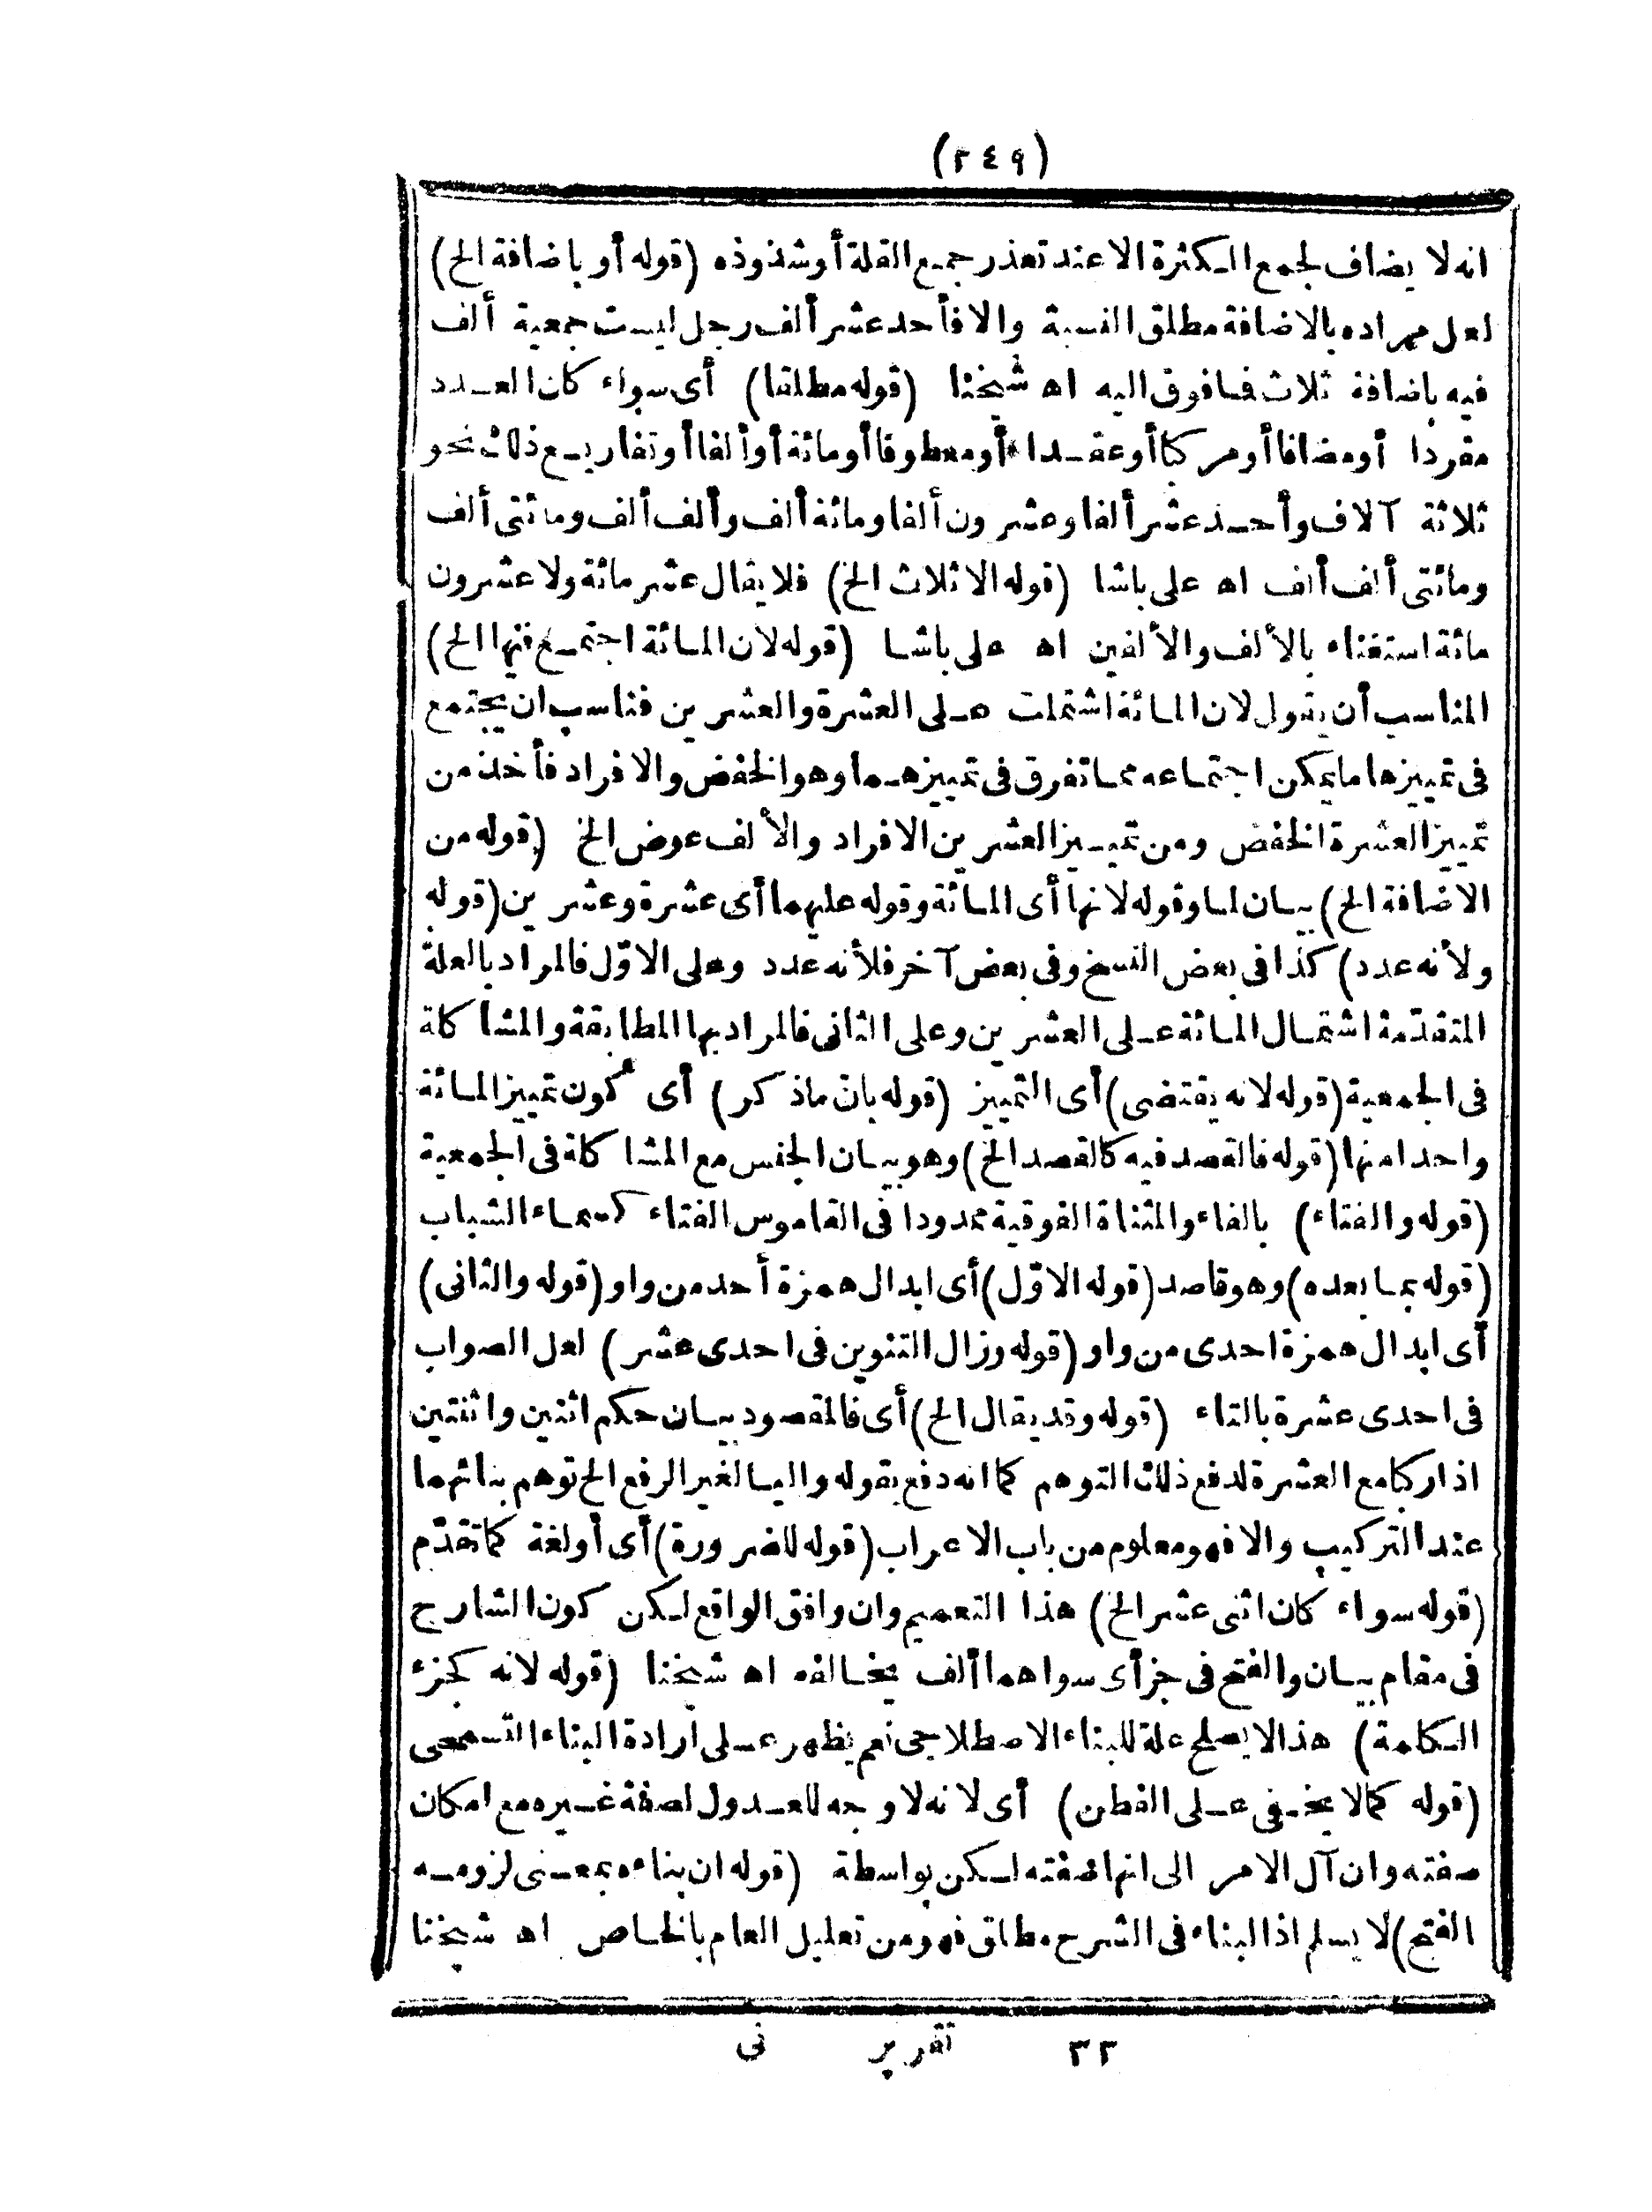 (٢٤٩)
انه لا يضاف لجمع الكثرة الا عند تعذر جمع القلة أو شذوذه (قوله أو باضافة الخ)
لعل مراده بالاضافة مطلق النسبة والا فأحد عشر ألف رجل ليست جمعية ألف
فيه باضافة ثلاث فما فوق اليه اه شيخنا (قوله مطلقا) أى سواء كان العدد
مفردا أو مضافا أو مركبا أو عقدا أو معطوفا أو مائة أو ألفا أو تفاريع ذلك نحو
ثلاثة آلاف وأحد عشر ألفا وعشرون ألفا ومائة ألف وألف ألف ومائتى ألف
ومائتى ألف ألف اه على باشا (قوله الا ثلاث الخ) فلا يقال عشر مائة ولا عشرون
مائة استغناء بالألف والألفين اه على باشا (قوله لان المائة اجتمع فيها الخ)
المناسب أن يقول لان المائة اشتملت على العشرة والعشرين فناسب ان يجتمع
فى تمييزها ما يمكن اجتماعه مما تفرق فى تمييزهما وهو الخفض والافراد فأخذ من
تمييز العشرة الخفض ومن تمييز العشرين الافراد والألف عوض الخ (قوله من
الاضافة الخ) بيان لما وقوله لانها أى المائة وقوله عليهما أى عشرة وعشرين (قوله
ولأنه عدد) كذا فى بعض النسخ وفى بعض آخر فلأنه عدد وعلى الاوّل فالمراد بالعلة
المتقدّمة اشتمال المائة على العشرين وعلى الثانى فالمراد بها المطابقة والمشاكلة
فى الجمعية (قوله لانه يقتضى) أى التمييز (قوله بانّ ماذكر) أى كون تمييز المائة
واحدا منها (قوله فالقصد فيه كالقصد الخ) وهو بيان الجنس مع المشاكلة فى الجمعية
(قوله والفتاء) بالفاء والمثناة الفوقية ممدودا فى القاموس الفتاء كسماء الشباب
(قوله بما بعده) وهو قاصد (قوله الاوّل) أى ابدال همزة أحد من واو (قوله والثانى)
أى ابدال همزة احدى من واو (قوله وزال التنوين فى احدى عشر) لعل الصواب
فى احدى عشرة بالتاء (قوله وقد يقال الخ) أى فالمقصود بيان حكم اثنين واثنتين
اذا ركبا مع العشرة لدفع ذلك التوهم كما انه دفع بقوله واليا لغير الرفع الخ توهم بنائهما
عند التركيب والا فهو معلوم من باب الاعراب (قوله للضرورة) أى أو لغة كما تقدّم
(قوله سواء كان اثنى عشر الخ) هذا التعميم وان وافق الواقع لكن كون الشارح
فى مقام بيان والفتح فى جزأى سواهما ألف يخالفه اه شيخنا (قوله لانه كجزء
الكلمة) هذا لا يصلح علة للبناء الاصطلاحى نعم يظهر على ارادة البناء التسمحى
(قوله كما لا يخفى على الفطن) أى لانه لا وجه للعدول لصفة غيره مع امكان
صفته وان آل الامر الى انها صفته لكن بواسطة (قوله ان بناءه بمعنى لزومه
الفتح) لا يسلم اذ البناء فى الشرح مطلق فهو من تعليل العام بالخاص اه شيخنا
٣٢ تقرير نى